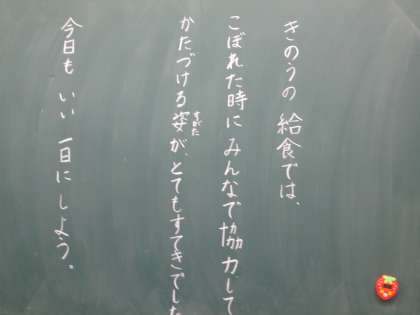 きのうの給食では、
こぼれた時にみんなで協力して
かたづける姿が、とてもすてきでした
すがた
今日もいい一日にしよう。